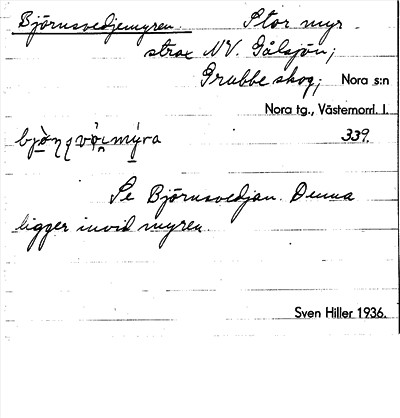 Björnsvedjemyren. Stor myr
strax NV. Gålsjön;
Grubbe skog; Nora s:n
Nora tg., Västernorrl. l.
339.
Se Björnsvedjan. Denna
ligger invid myren.
Sven Hiller 1936.